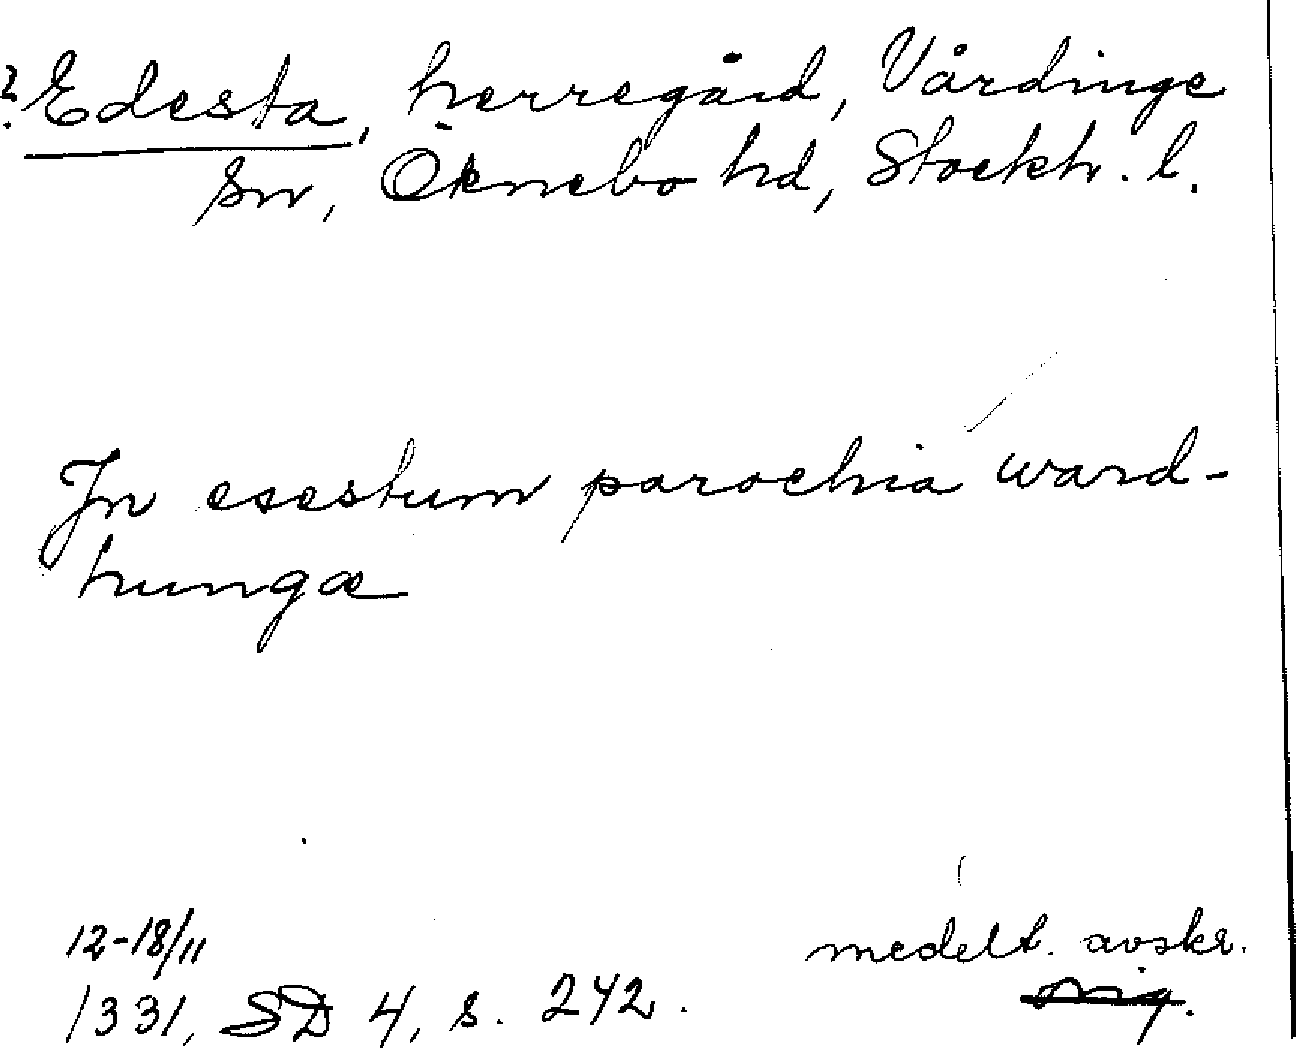 ? Edesta, herregård, Vårdinge
sn, Öknebo hd, Stockh. l.
In esestum parochia ward-
hungæ
12-18/11
medelt. avskr.
1331, SD 4, s. 242.
orig.